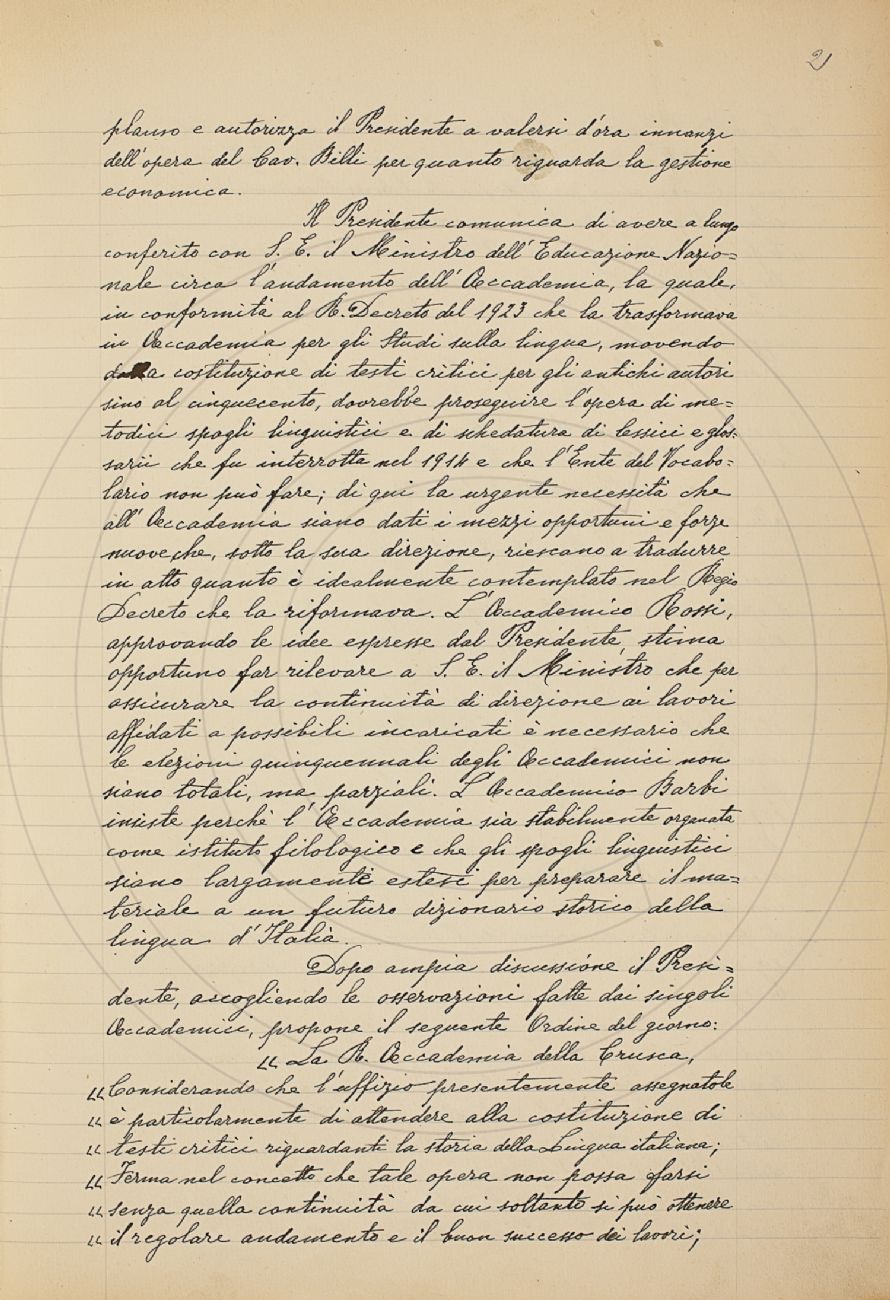 2
plauso e autorizza il Presidente a valersi d'ora innanzi
dell'opera del Cav. Billi per quanto riguarda la gestione
economica.
Il Presidente comunica di avere a lungo
conferito con S. E. il Ministro dell'Educazione Nazio=
nale circa l'andamento dell'Accademia, la quale,
in conformità al R. Decreto del 1923 che la trasformava
in Accademia per gli Studi sulla lingua, movendo
dalla costituzione di testi critici per gli antichi autori
sino al cinquecento, dovrebbe proseguire l'opera di me=
todici spogli linguistici e di schedatura di lessici e glos=
sarii che fu interrotta nel 1914 e che l'Ente del Vocabo=
lario non può fare; di qui la urgente necessità che
all'Accademia siano dati i mezzi opportuni e forze
nuove che, sotto la sua direzione, riescano a tradurre
in atto quanto è idealmente contemplato nel Regio
Decreto che la riformava. L'Accademico Rossi,
approvando le idee espresse dal Presidente, stima
opportuno far rilevare a S. E. il Ministro che per
assicurare la continuità di direzione ai lavori
affidati a possibili incaricati è necessario che
le elezioni quinquennali degli Accademici non
siano totali, ma parziali. L'Accademico Barbi
insiste perchè l'Accademia sia stabilmente organata
come istituto filologico e che gli spogli linguistici
siano largamente estesi per preparare il ma=
teriale a un futuro dizionario storico della
lingua d'Italia.
Dopo ampia discussione il Presi=
dente, accogliendo le osservazioni fatte dai singoli
Accademici, propone il seguente Ordine del giorno:
"La R. Accademia della Crusca,
"Considerando che l'uffizio presentemente assegnatole
"è particolarmente di attendere alla costituzione di
"testi critici riguardanti la storia della Lingua italiana;
"Ferma nel concetto che tale opera non possa farsi
"senza quella continuità da cui soltanto si può ottenere
"il regolare andamento e il buon successo dei lavori;